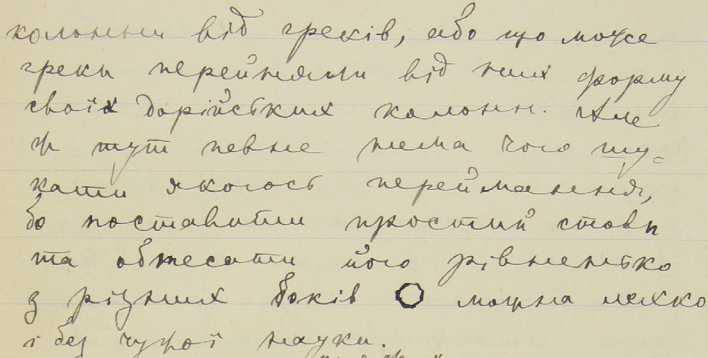 колонни від греків, або що може
греки перейняли від них форму
своїх дорійських колонн. Але
й тут певне нема чого шу=
кати якогось переймання,
бо поставити простий стовп
та обтесати його рівненько
з різних боків можна лехко
і без чужої науки.